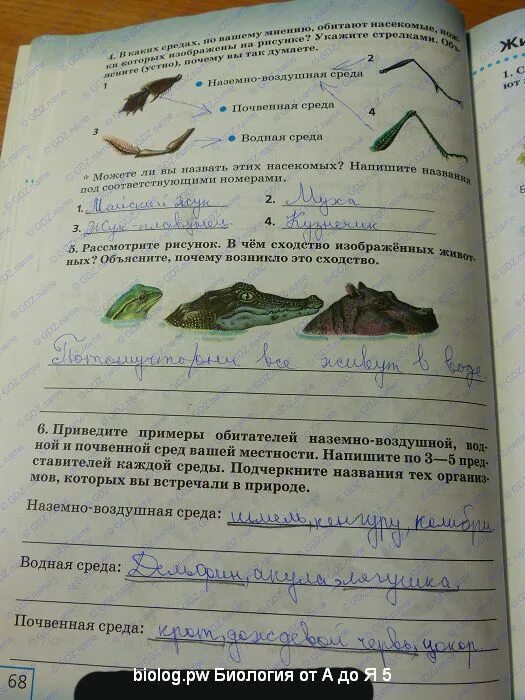 4. В каких средах, по вашему мнению, обитают насекомые, нож-
ки которых изображены на рисунке? Укажите стрелками. Объ-
ясните (устно), почему вы так думаете.
1
2
• Наземно-воздушная среда
• Почвенная среда
3
4
• Водная среда
* Можете ли вы назвать этих насекомых? Напишите названия
под соответствующими номерами.
1. Майский жук
2. Муха
3. Жук-плавунец
4. Кузнечик
5. Рассмотрите рисунок. В чём сходство изображённых живот-
ных? Объясните, почему возникло это сходство.
Потому что они все живут в воде
6. Приведите примеры обитателей наземно-воздушной, вод-
ной и почвенной сред вашей местности. Напишите по 3—5 пред-
ставителей каждой среды. Подчеркните названия тех организ-
мов, которых вы встречали в природе.
Наземно-воздушная среда: шмель, кенгуру, колибри
Водная среда: Дельфин, акула, лягушка
Почвенная среда: крот, дождевой червь, цокор
68
biolog.pw Биология от А до Я 5
Жи
1. С
ют
© GDZ.name